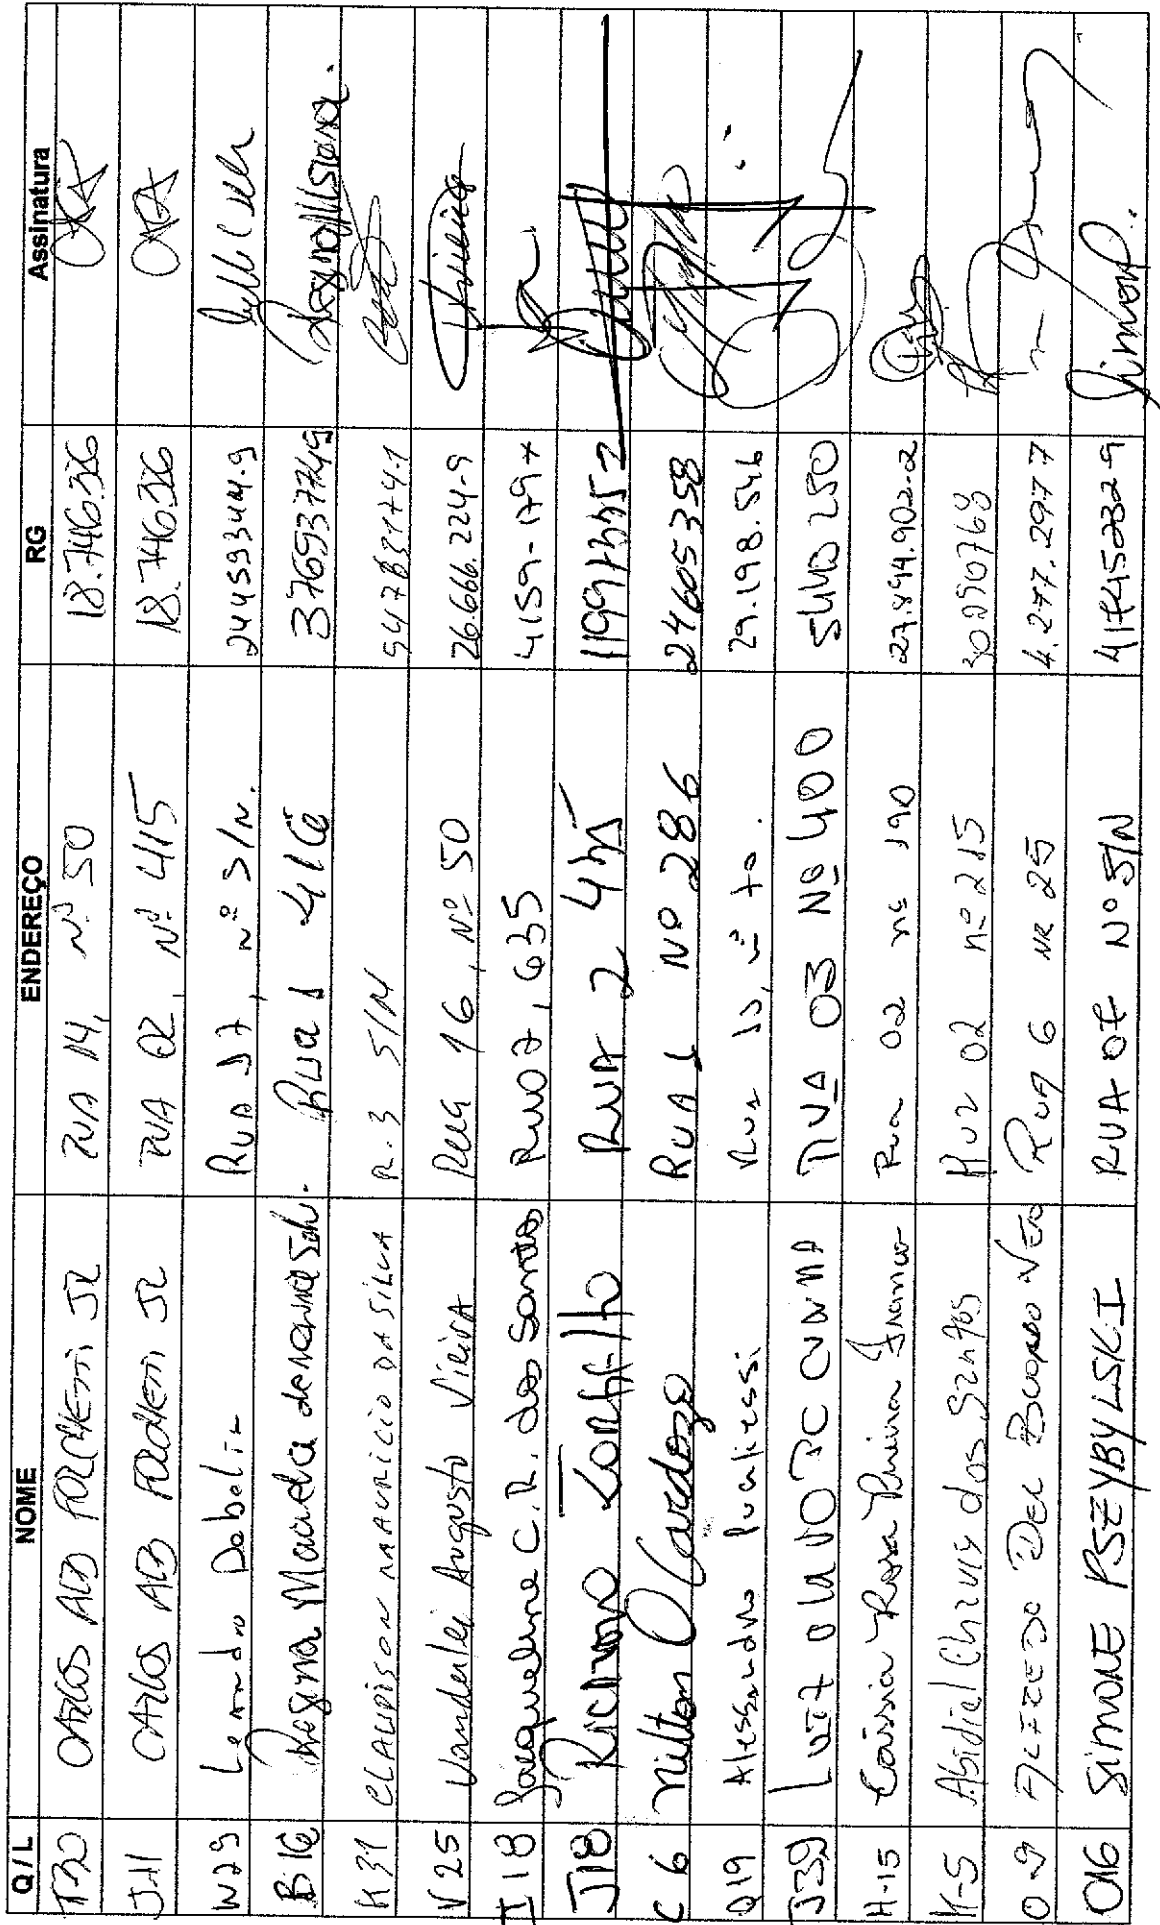 Q / L NOME ENDEREÇO RG Assinatura
T30 CARLOS ALB FORCHETTI JR RUA 14, Nº 50 18.746.326
J-11 CARLOS ALB FORCHETTI JR RUA 02, Nº 415 18.746.326
W29 Leandro Dabelir RUA 17, nº S/N. 24459344-9
B16 Regina Marcia de Rua 1 416 376937749
K31 CLAUDISON MAURICIO DA SILVA R. 3 S/N 54783174-1
V25 Vanderlei Augusto Vieira Rua 16, Nº 50 26.666.224-9 Vieira
I 18 Jaqueline C. R. dos Santos Rua 07, 635 4159-179x
J18 RUA 2
C 6 Nilton O Cardozo RUA 1 Nº 286 24605358
Q19 Alessandro 29.198.546
J39 LUIZ OLAVO CUNHA RUA 03 Nº 400 5440250
H-15 Cássia Rosa Franco Rua 02 nº 190 27.894.902-2
K-5 dos Santos 02 nº 215 30290768
O 9 DEL RUA 6 NR 25 4.277.2977
O16 SIMONE PSZYBYLSKI RUA 07 Nº S/N 417452329 Simone P.